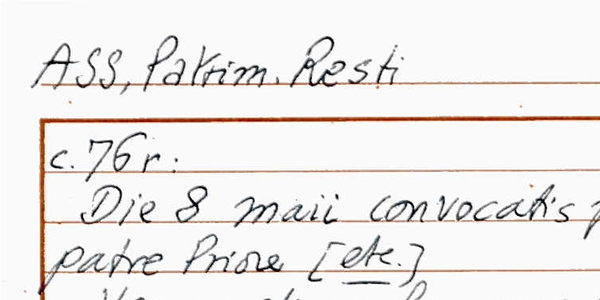 ASS, Patrim. Resti
c. 76 r.
Die 8 maii convocatis
patre Priore [etc.]